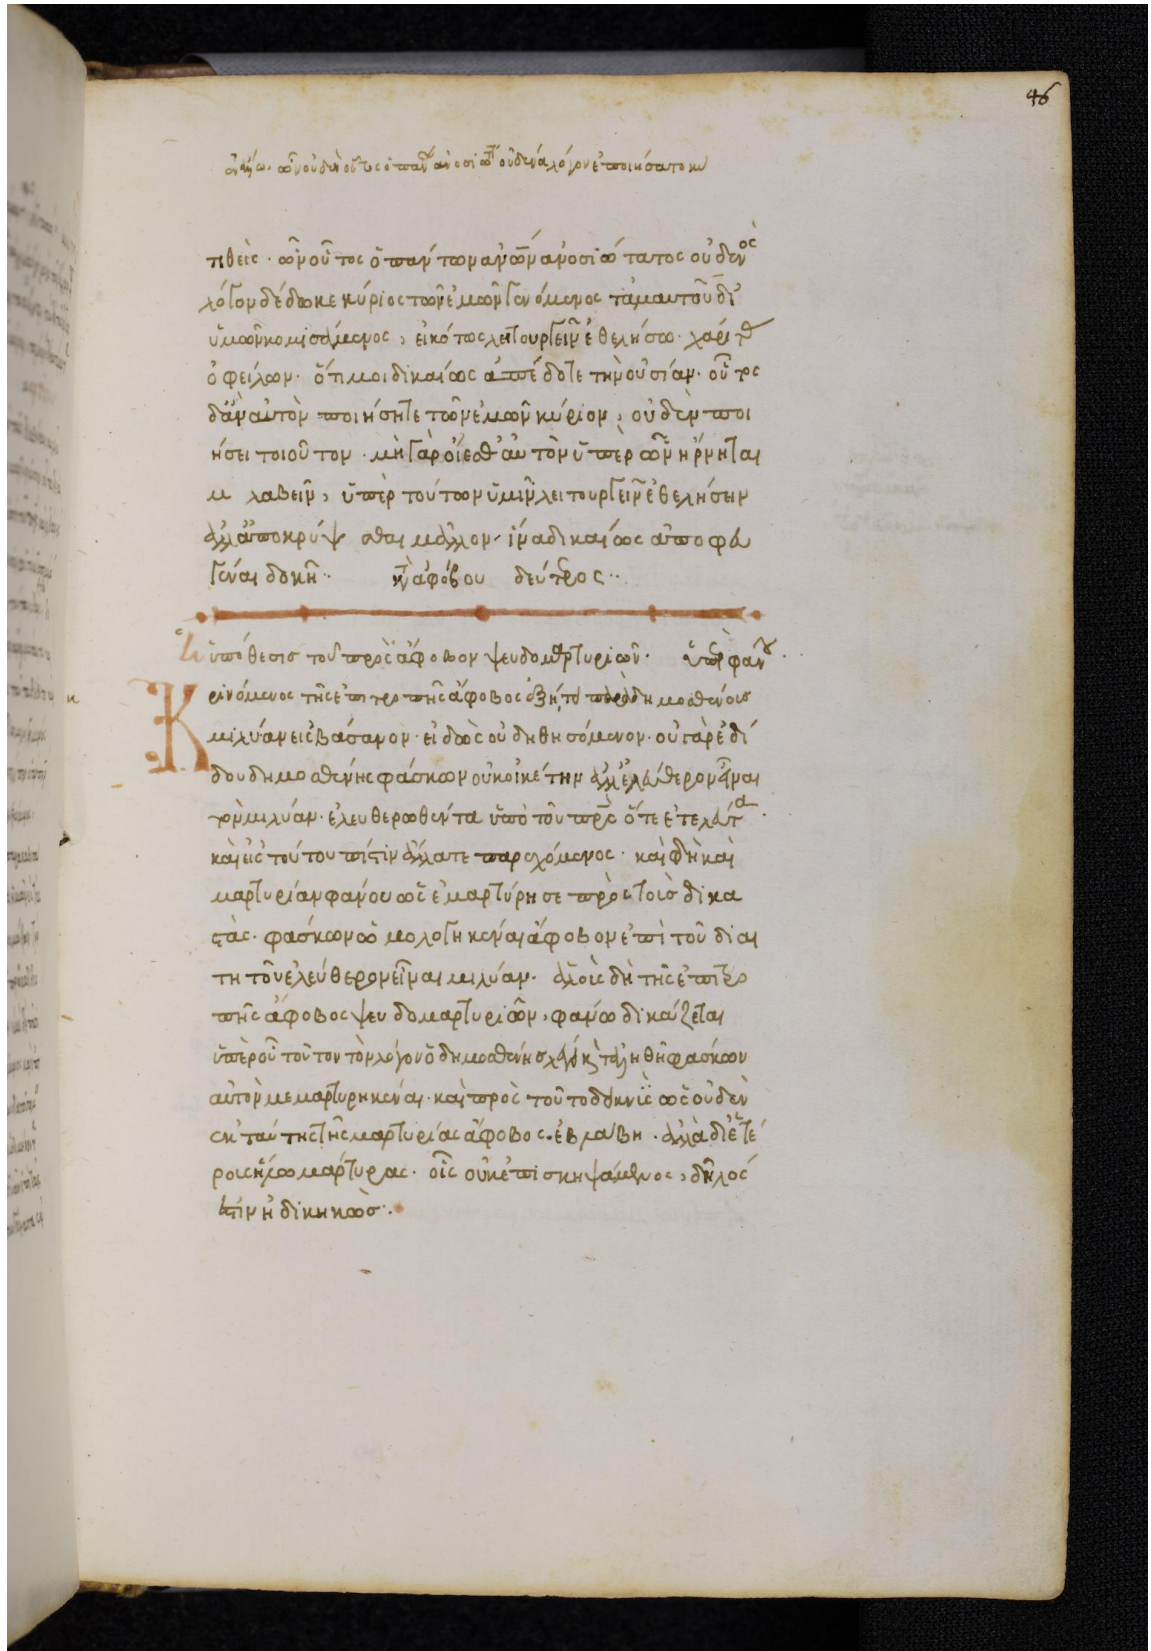 46
ὧν οὐδὲν οὗτος ὁ πάντων ἀνοσιώτατος οὐδένα λόγον ἐποιήσατο
τιθείς· ὧν οὗτος ὁ πάντων ἀνῶν ἀνοσιώτατος οὐδενὸς
λόγον δέδωκε κύριος τῶν ἐμῶν γενόμενος τἀμαυτοῦ δι'
ὑμῶν κομισάμενος, εἰκότως λειτουργεῖν ἐθελήσω· χάριτας
ὀφείλων· ὅτι μοι δικαίως ἀπέδοτε τὴν οὐσίαν· οὗτος
δ' ἂν αὐτὸν ποιήσητε τῶν ἐμῶν κύριον, οὐδὲν ποι
ήσει τοιοῦτον· μὴ γὰρ οἴεσθ' αὐτὸν ὑπὲρ ὧν ἤρνηται
μ λαβεῖν, ὑπὲρ τούτων ὑμῖν λειτουργεῖν ἐθελήσειν
ἀλλ' ἀποκρύψεσθαι μᾶλλον· ἵνα δικαίως ἀποφυ
γεῖναι δοκῇ· κατὰ ἀφόβου δεύτερος··
ὑπόθεσις τοῦ πρὸς ἄφοβον ψευδομαρτυριῶν· ὑπὲρ φάνου·
Κρινόμενος τῆς ἐπιτροπῆς ἄφοβος ἐζήτει παρὰ δημοσθένους
μιλύαν εἰς βάσανον· εἰδὼς οὐ δηθησόμενον· οὐ γὰρ ἐδί
δου δημοσθένης φάσκων οὐκ οἰκέτην ἀλλ' ἐλεύθερον εἶναι
τὸν μιλύαν· ἐλευθερωθέντα ὑπὸ τοῦ πρς ὅτε ἐτελεύτα·
καὶ εἰς τούτου πίστιν ἄλλα τε παρεχόμενος· καὶ δὴ καὶ
μαρτυρίαν φάνου ὡς ἐμαρτύρησε πρὸς τοὺς δικα
στὰς· φάσκων ὡμολογηκέναι ἄφοβον ἐπὶ τοῦ διαι
τητοῦ ἐλεύθερον εἶναι μιλύαν· ἁλοὺς δὴ τῆς ἐπιτρο
πῆς ἄφοβος ψευδομαρτυριῶν, φάνῳ δικάζεται
ὑπὲρ οὗ τοῦτον τὸν λόγον ὁ δημοσθένης λέγει καὶ τἀληθῆ φάσκων
αὐτὸν μεμαρτυρηκέναι· καὶ πρὸς τοῦτο δεικνὺς ὡς οὐδὲν
ἐκ ταύτης τῆς μαρτυρίας ἄφοβος ἐβλάβη· ἀλλὰ δι' ἑτέ
ρους ἥλω μάρτυρας· οἷς οὐκ ἐπισκηψάμενος, δῆλός
ἐστιν ἠδικηκὼς·